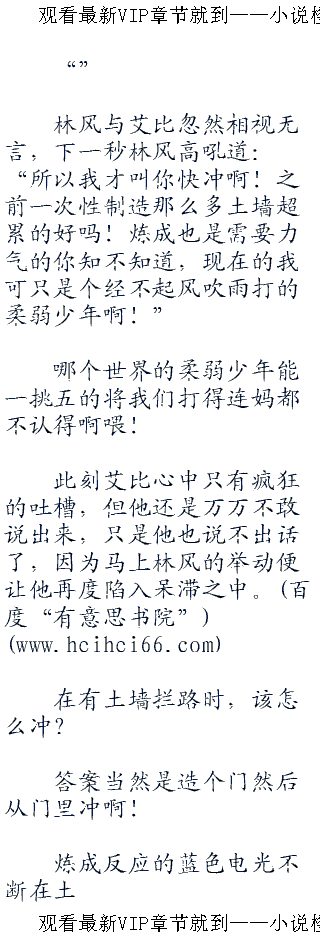 观看最新VIP章节就到——小说
“”
林风与艾比忽然相视无
言，下一秒林风高吼道：
“所以我才叫你快冲啊！之
前一次性制造那么多土墙超
累的好吗！炼成也是需要力
气的你知不知道，现在的我
可只是个经不起风吹雨打的
柔弱少年啊！”
哪个世界的柔弱少年能
一挑五的将我们打得连妈都
不认得啊喂！
此刻艾比心中只有疯狂
的吐槽，但他还是万万不敢
说出来，只是他也说不出话
了，因为马上林风的举动便
让他再度陷入呆滞之中。(百
度“有意思书院”)
(www.hcihci66.com)
在有土墙拦路时，该怎
么冲？
答案当然是造个门然后
从门里冲啊！
炼成反应的蓝色电光不
断在土
观看最新VIP章节就到——小说